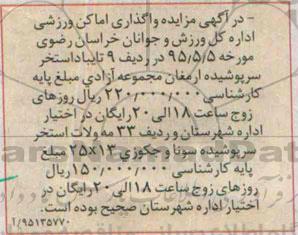 - در آگهی مزایده واگذاری اماکن ورزشی
اداره کل ورزش و جوانان خراسان رضوی
مورخه ۹۵/۵/۵ در ردیف ۹ تایباداستخر
سرپوشیده ارمغان مجموعه آزادي مبلغ پایه
کارشناسی ۲۲۰/۰۰۰/۰۰۰ ریال روزهای
زوج ساعت ۱۸الی۲۰رایگان در اختیار
اداره شهرستان و ردیف ۳۳ مه ولات استخر
سرپوشیده سونا و جکوزي ۱۳×۲۵ مبلغ
پایه کارشناسی ۱۵۰/۰۰۰/۰۰۰ریال
روزهای زوج ساعت ۱۸ الی۲۰رایگان در
اختیار اداره شهرستان صحیح بوده است.
۹۵۱۳۵۷۷۰/آ